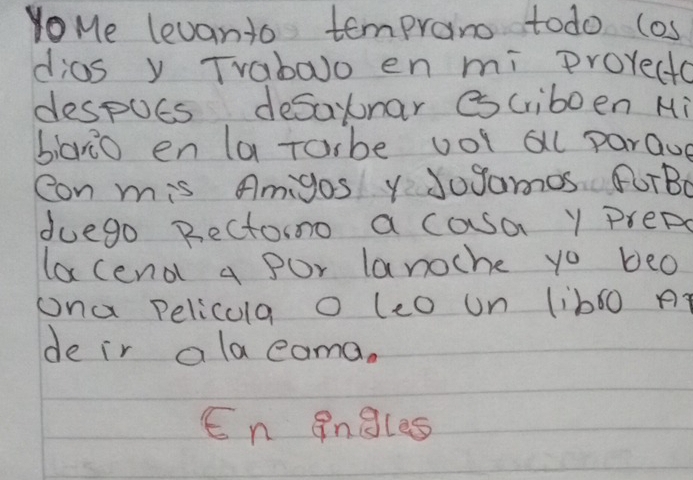 Yo Me levanto temprano todo los
dias y Trabajo en mi Proyecto
despues desayunar escribo en Mi
diario en la Tarbe voy al Parque
con mis Amigos y Jugamos FutBo
luego Rectorno a casa y Prepa
la cena y Por la noche yo beo
una Pelicula o leo un libro An
de ir a la cama.
En ingles